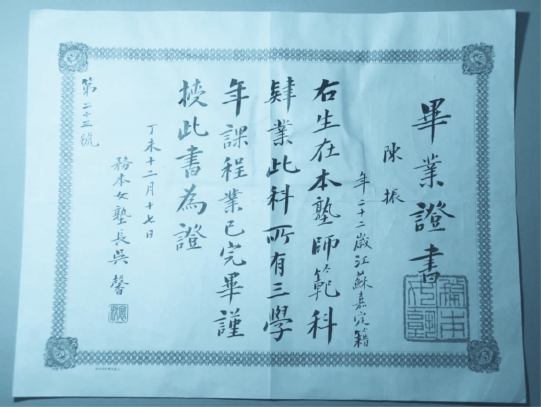 畢業證書
陳振
年二十二歲江蘇嘉定籍
右生在本塾師範科
肄業此科所有三學
年課程業已完畢謹
授此書為證
丁未十二月十七日
務本女塾長吳馨
第二十五號